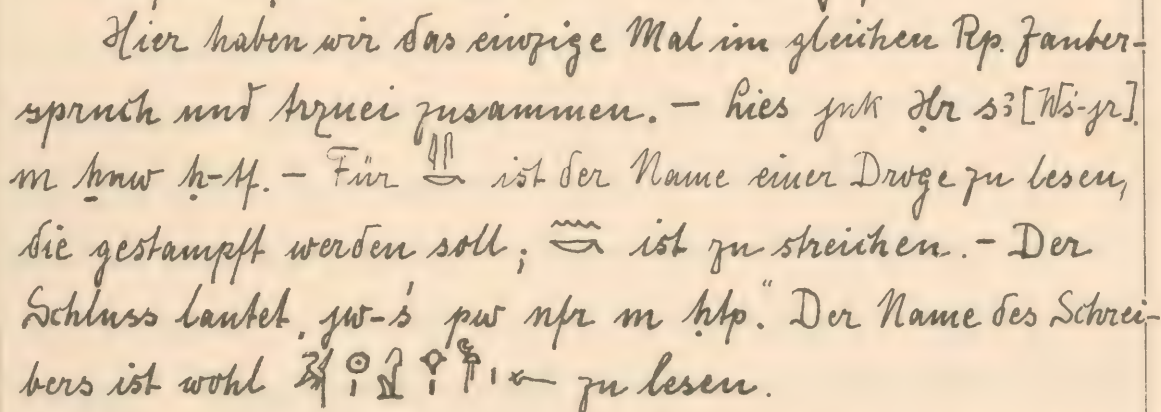 Hier haben wir das einzige Mal im gleichen Rp. Zauber-
spruch und Arznei zusammen. – Lies jnk Ḥr sꜣ [Wś-jr]
m ẖnw ḥ-tf. – Für ist der Name einer Droge zu lesen,
die gestampft werden soll; ist zu streichen. – Der
Schluss lautet „jw-ś pw nfr m ḥtp.“ Der Name des Schrei-
bers ist wohl zu lesen.